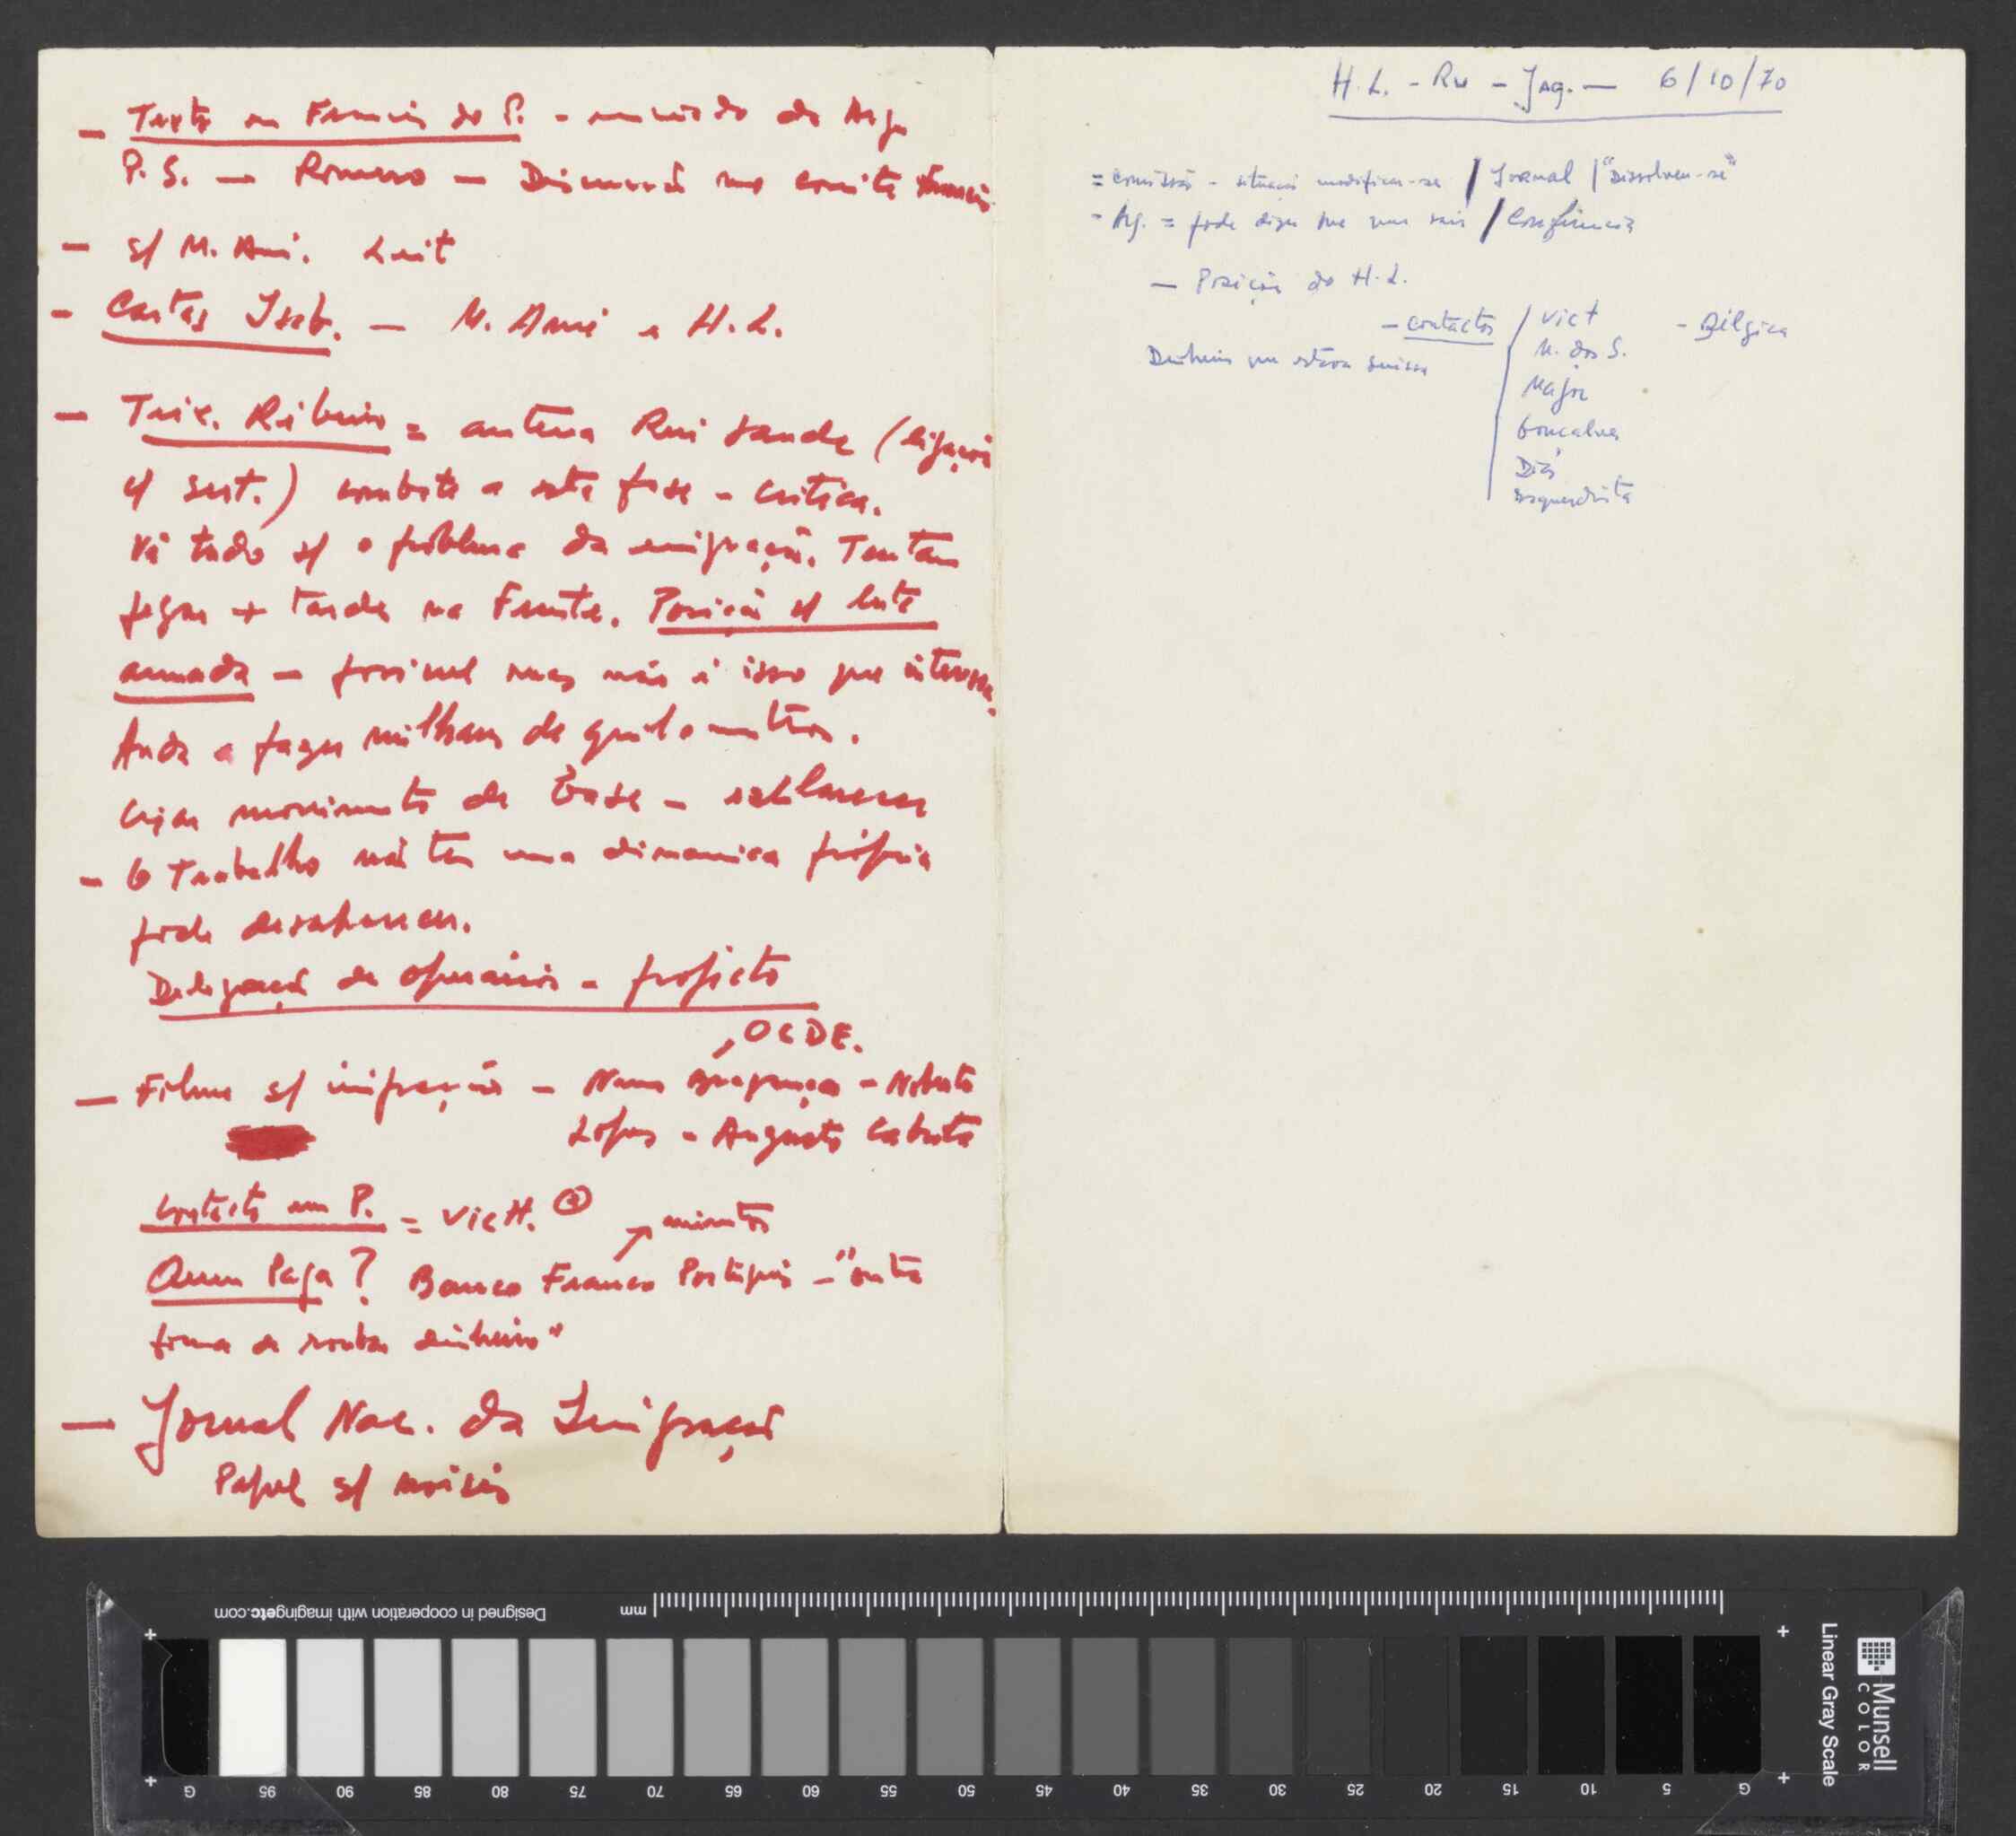 — Texto em Francês do P. - enviado do Arg.
P.S. — Romero — Discussão no comité francês
— s/ M. Ani. Leit
— Cartas Isab. — M. Ani e H.L.
— Teix. Ribeiro = antena Rui Sande (ligação
c/ set.) combate a esta fase - critica.
Vê tudo s/ o problema da emigração. Tentam
pegar + tarde na Frente. Posição s/ luta
armada — possivel mas não é isso que interessa.
Anda a fazer milhares de quilometros.
Criar movimento de Base — esclarecer
— O Trabalho não tem uma dinamica própria
pode desaparecer.
Delegação de operários - projecto
OCDE.
— Filme s/ imigração — Nuno Bragança - Noberto
Lopes - Augusto Cabrita
Contacto em P. = Vict.
minutos
Quem Paga? Banco Franco Português — "outra
forma de roubar dinheiro"
— Jornal Nac. da Imigração
Papel s/
H.L. - Ru - Jag. — 6/10/70
= comissão - situação modificou-se / Jornal / "Dissolveu-se"
- Arg. = pode dizer que quer sair / Conferência
— Posição do H.L.
— contactos / Vict - Bélgica
M. dos S.
Dinheiro que estava Suissa
Major
Gonçalves
Dias
esquerdista
Designed in cooperation with imagingetc.com
mm
Munsell
COLOR
Linear Gray Scale
G 95 90 85 80 75 70 65 60 55 50 45 40 35 30 25 20 15 10 5 G